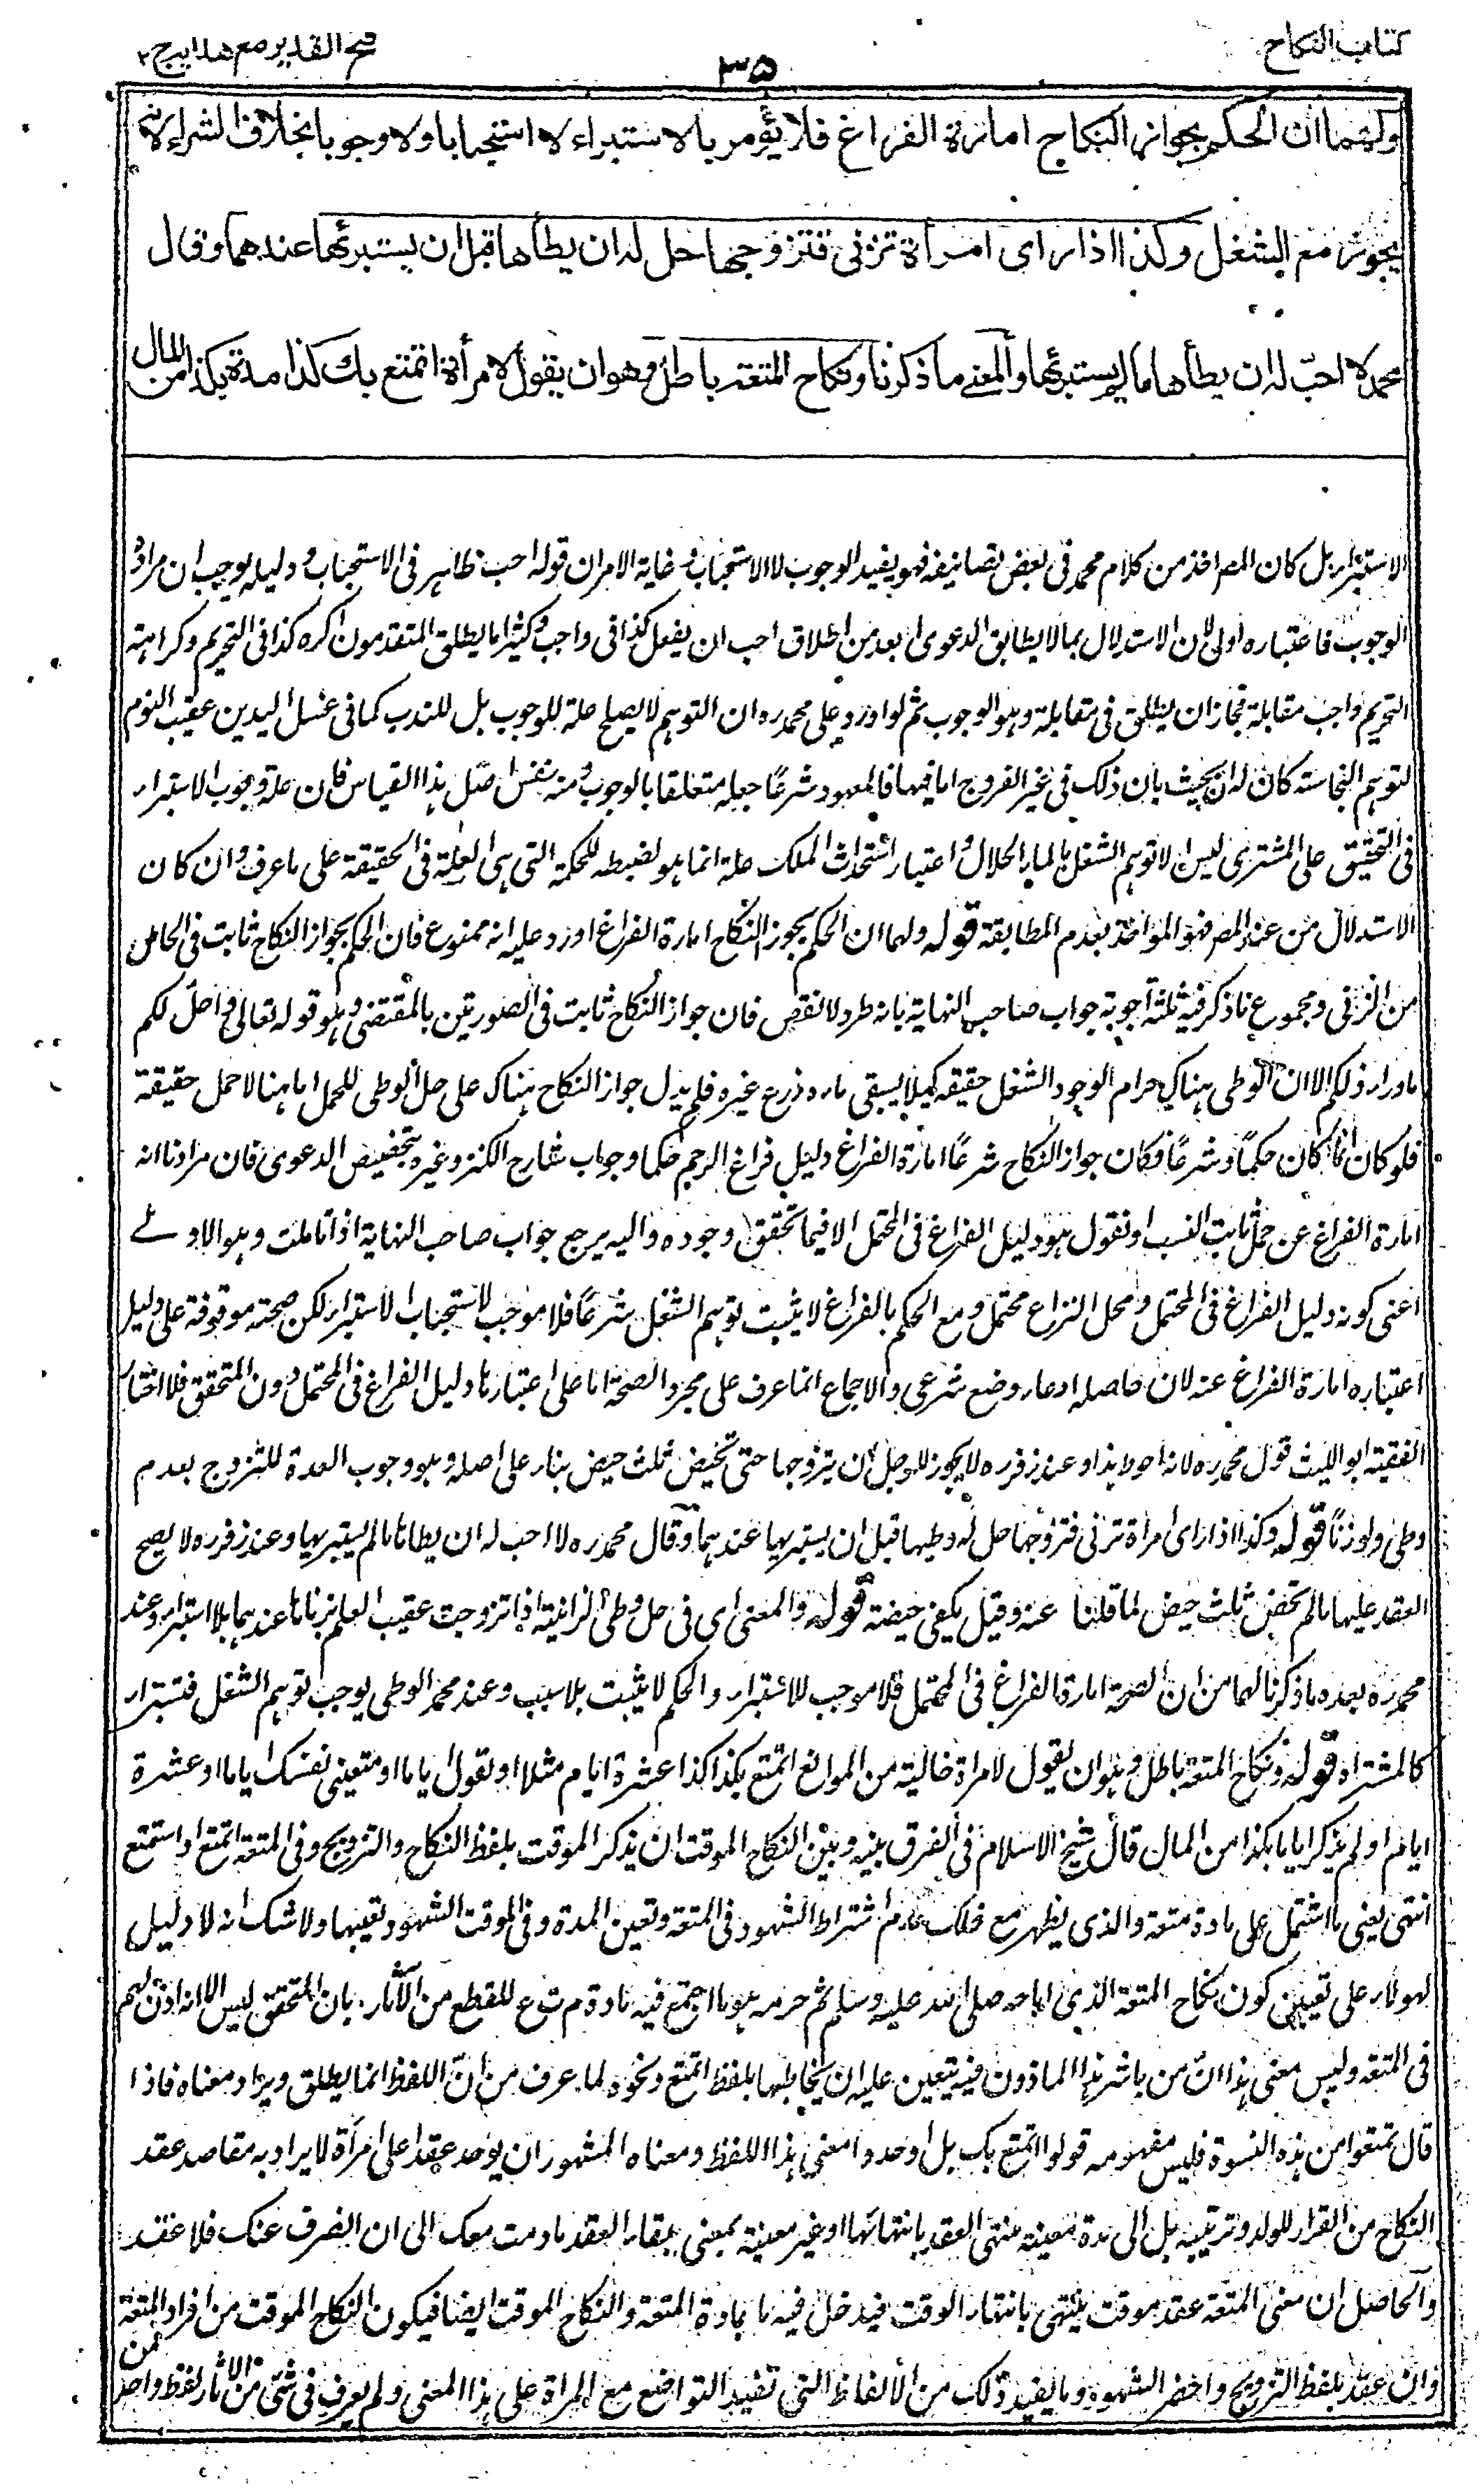 كتاب النكاح
٣٥
فتح القدير مع هدايه ج ٢
ولهما ان الحكم بجواز النكاح امارة الفراغ فلا يؤمر بالاستبراء لا استحبابا ولا وجوبا بخلاف الشراء لانه
يجوز مع الشغل وكذا اذا راى امرأة تزنى فتزوجها حل له ان يطأها قبل ان يستبرئها عندهما وقال
محمد لا احب له ان يطأها ما لم يستبرئها والمعنے ما ذكرنا ونكاح المتعة باطل وهو ان يقول لامرأة اتمتع بك كذا مدة بكذا من المال
الاستبراء بل كان المص اخذ من كلام محمد فى بعض تصانيفه فهو يفيد الوجوب لا الاستحباب وغاية الامر ان قوله احب ظاهر فى الاستحباب ودليله يوجب ان مراده
الوجوب فاعتباره اولى لان الاستدلال بما لا يطابق الدعوى ابعد من اطلاق احب ان يفعل كذا فى واجب وكثيرا ما يطلق المتقدمون اكره كذا فى التحريم وكراهة
التحريم واجب مقابلة فجاز ان يطلق فى مقابلة وهو الوجوب ثم لو اورد على محمد ره ان التوهم لا يصلح علة للوجوب بل للندب كما فى غسل اليدين عقيب النوم
لتوهم النجاسة كان له ان يجيب بان ذلك فى غير الفروج اما فيها فالمعهود شرعًا جعله متعلقا بالوجوب ومنه نفس اصل هذا القياس فان علة وجوب الاستبراء
فى التحقيق على المشترى ليس الا توهم الشغل بالماء الحلال واعتبار استحداث الملك علة انما هو لضبطه للحكمة التى هى العلة فى الحقيقة على ما عرف وان كان
الاستدلال من عند المص فهو المواخذ بعدم المطابقة قوله ولهما ان الحكم بجواز النكاح امارة الفراغ اورد عليه انه ممنوع فان الحكم بجواز النكاح ثابت فى الحامل
من الزنى ومجموع ما ذكر فيه ثلثة اجوبة جواب صاحب النهاية بانه طرد لا نقض فان جواز النكاح ثابت فى الصورتين بالمقتضى وهو قوله تعالى واحل لكم
ما وراء ذلكم الا ان الوطى هناك حرام لوجود الشغل حقيقة كيلا يسقى ماءه زرع غيره فلم يدل جواز النكاح هناك على حل الوطى للحمل اما هنا لا حمل حقيقة
فلو كان انما كان حكمًا وشرعًا فكان جواز النكاح شرعًا امارة الفراغ دليل فراغ الرحم حكما وجواب شارح الكنز وغيره بتخصيص الدعوى فان مرادنا انه
امارة الفراغ عن حمل ثابت النسب او نقول هو دليل الفراغ فى المحتمل الا فيما تحقق وجوده واليه يرجع جواب صاحب النهاية اذا تاملت وهو الاولے
اعنى كونه دليل الفراغ فى المحتمل ومحل النزاع محتمل ومع الحكم بالفراغ لا يثبت توهم الشغل شرعًا فلا موجب لاستحباب الاستبراء لكن صحته موقوفة على دليل
اعتباره امارة الفراغ عنه لان حاصله ادعاء وضع شرعى والاجماع انما عرف على مجرد الصحة اما على اعتبارها دليل الفراغ فى المحتمل دون المتحقق فلا اختار
الفقيه ابو الليث قول محمد ره لانه احوط هذا وعند زفر ره لا يجوز للرجل ان يتزوجها حتى تحيض ثلث حيض بناء على اصله وهو وجوب العدة للتزوج بعدم
وطى ولو زنًا قوله وكذا اذا راى امراة تزنى فتزوجها حل له وطيها قبل ان يستبريها عندهما وقال محمد ره لا احب له ان يطاها ما لم يستبريها وعند زفر ره لا يصح
العقد عليها ما لم تحض ثلث حيض لما قلنا عنه وقيل يكفى حيضة قوله والمعنى اى فى حل وطى الزانية اذا تزوجت عقيب العلم بزناها عندهما بلا استبراء وعند
محمد ره بعده ما ذكرنا لهما من ان الصحة امارة الفراغ فى المحتمل فلا موجب للاستبراء والحكم لا يثبت بلا سبب وعند محمد الوطى يوجب توهم الشغل فتستبراء
كالمشتراة قوله ونكاح المتعة باطل وهو ان يقول لامراة خالية من الموانع اتمتع بكذا كذا عشرة ايام مثلا او يقول اياما او متعينى نفسك اياما او عشرة
ايام او لم يذكر اياما بكذا من المال قال شيخ الاسلام فى الفرق بينه وبين النكاح الموقت ان يذكر الموقت بلفظ النكاح والتزويج وفى المتعة اتمتع او استمتع
انتهى يعنى ما اشتمل على مادة متعة والذى يظهر مع ذلك عدم اشتراط الشهود فى المتعة وتعين المدة وفى الموقت الشهود وتعينها ولا شك انه لا دليل
لهولاء على تعيين كون نكاح المتعة الذى اباحه صلى الله عليه وسلم ثم حرمه هو ما اجتمع فيه مادة م ت ع للقطع من الآثار بان المتحقق ليس الا انه اذن لهم
فى المتعة وليس معنى هذا ان من باشر هذا الماذون فيه يتعين عليه ان يخاطبها بلفظ اتمتع ونحوه لما عرف من ان اللفظ انما يطلق ويراد معناه فاذا
قال تمتعوا من هذه النسوة فليس مفهومه قولوا اتمتع بك بل اوجدوا معنى هذا اللفظ ومعناه المشهور ان يوجد عقدا على امرأة لا يراد به مقاصد عقد
النكاح من القرار للولد وتربيته بل الى مدة معينة ينتهى العقد بانتهائها او غير معينة بمعنى بقاء العقد ما دمت معك الى ان انصرف عنك فلا عقد
والحاصل ان معنى المتعة عقد موقت ينتهى بانتهاء الوقت فيدخل فيه ما بمادة المتعة والنكاح الموقت ايضا فيكون النكاح الموقت من افراد المتعة
وان عقد بلفظ التزويج واحضر الشهود وما يفيد ذلك من الالفاظ التى تفيد التواضع مع المراة على هذا المعنى ولم يعرف فى شئى من الآثار لفظ واحد من